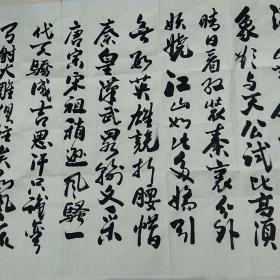 象欲与天公试比高须
晴日看红装素裹分外
妖娆江山如此多娇引
无数英雄竞折腰惜
秦皇汉武略输文采
唐宗宋祖稍逊风骚一
代天骄成吉思汗只识弯
弓射大雕俱往矣数风流